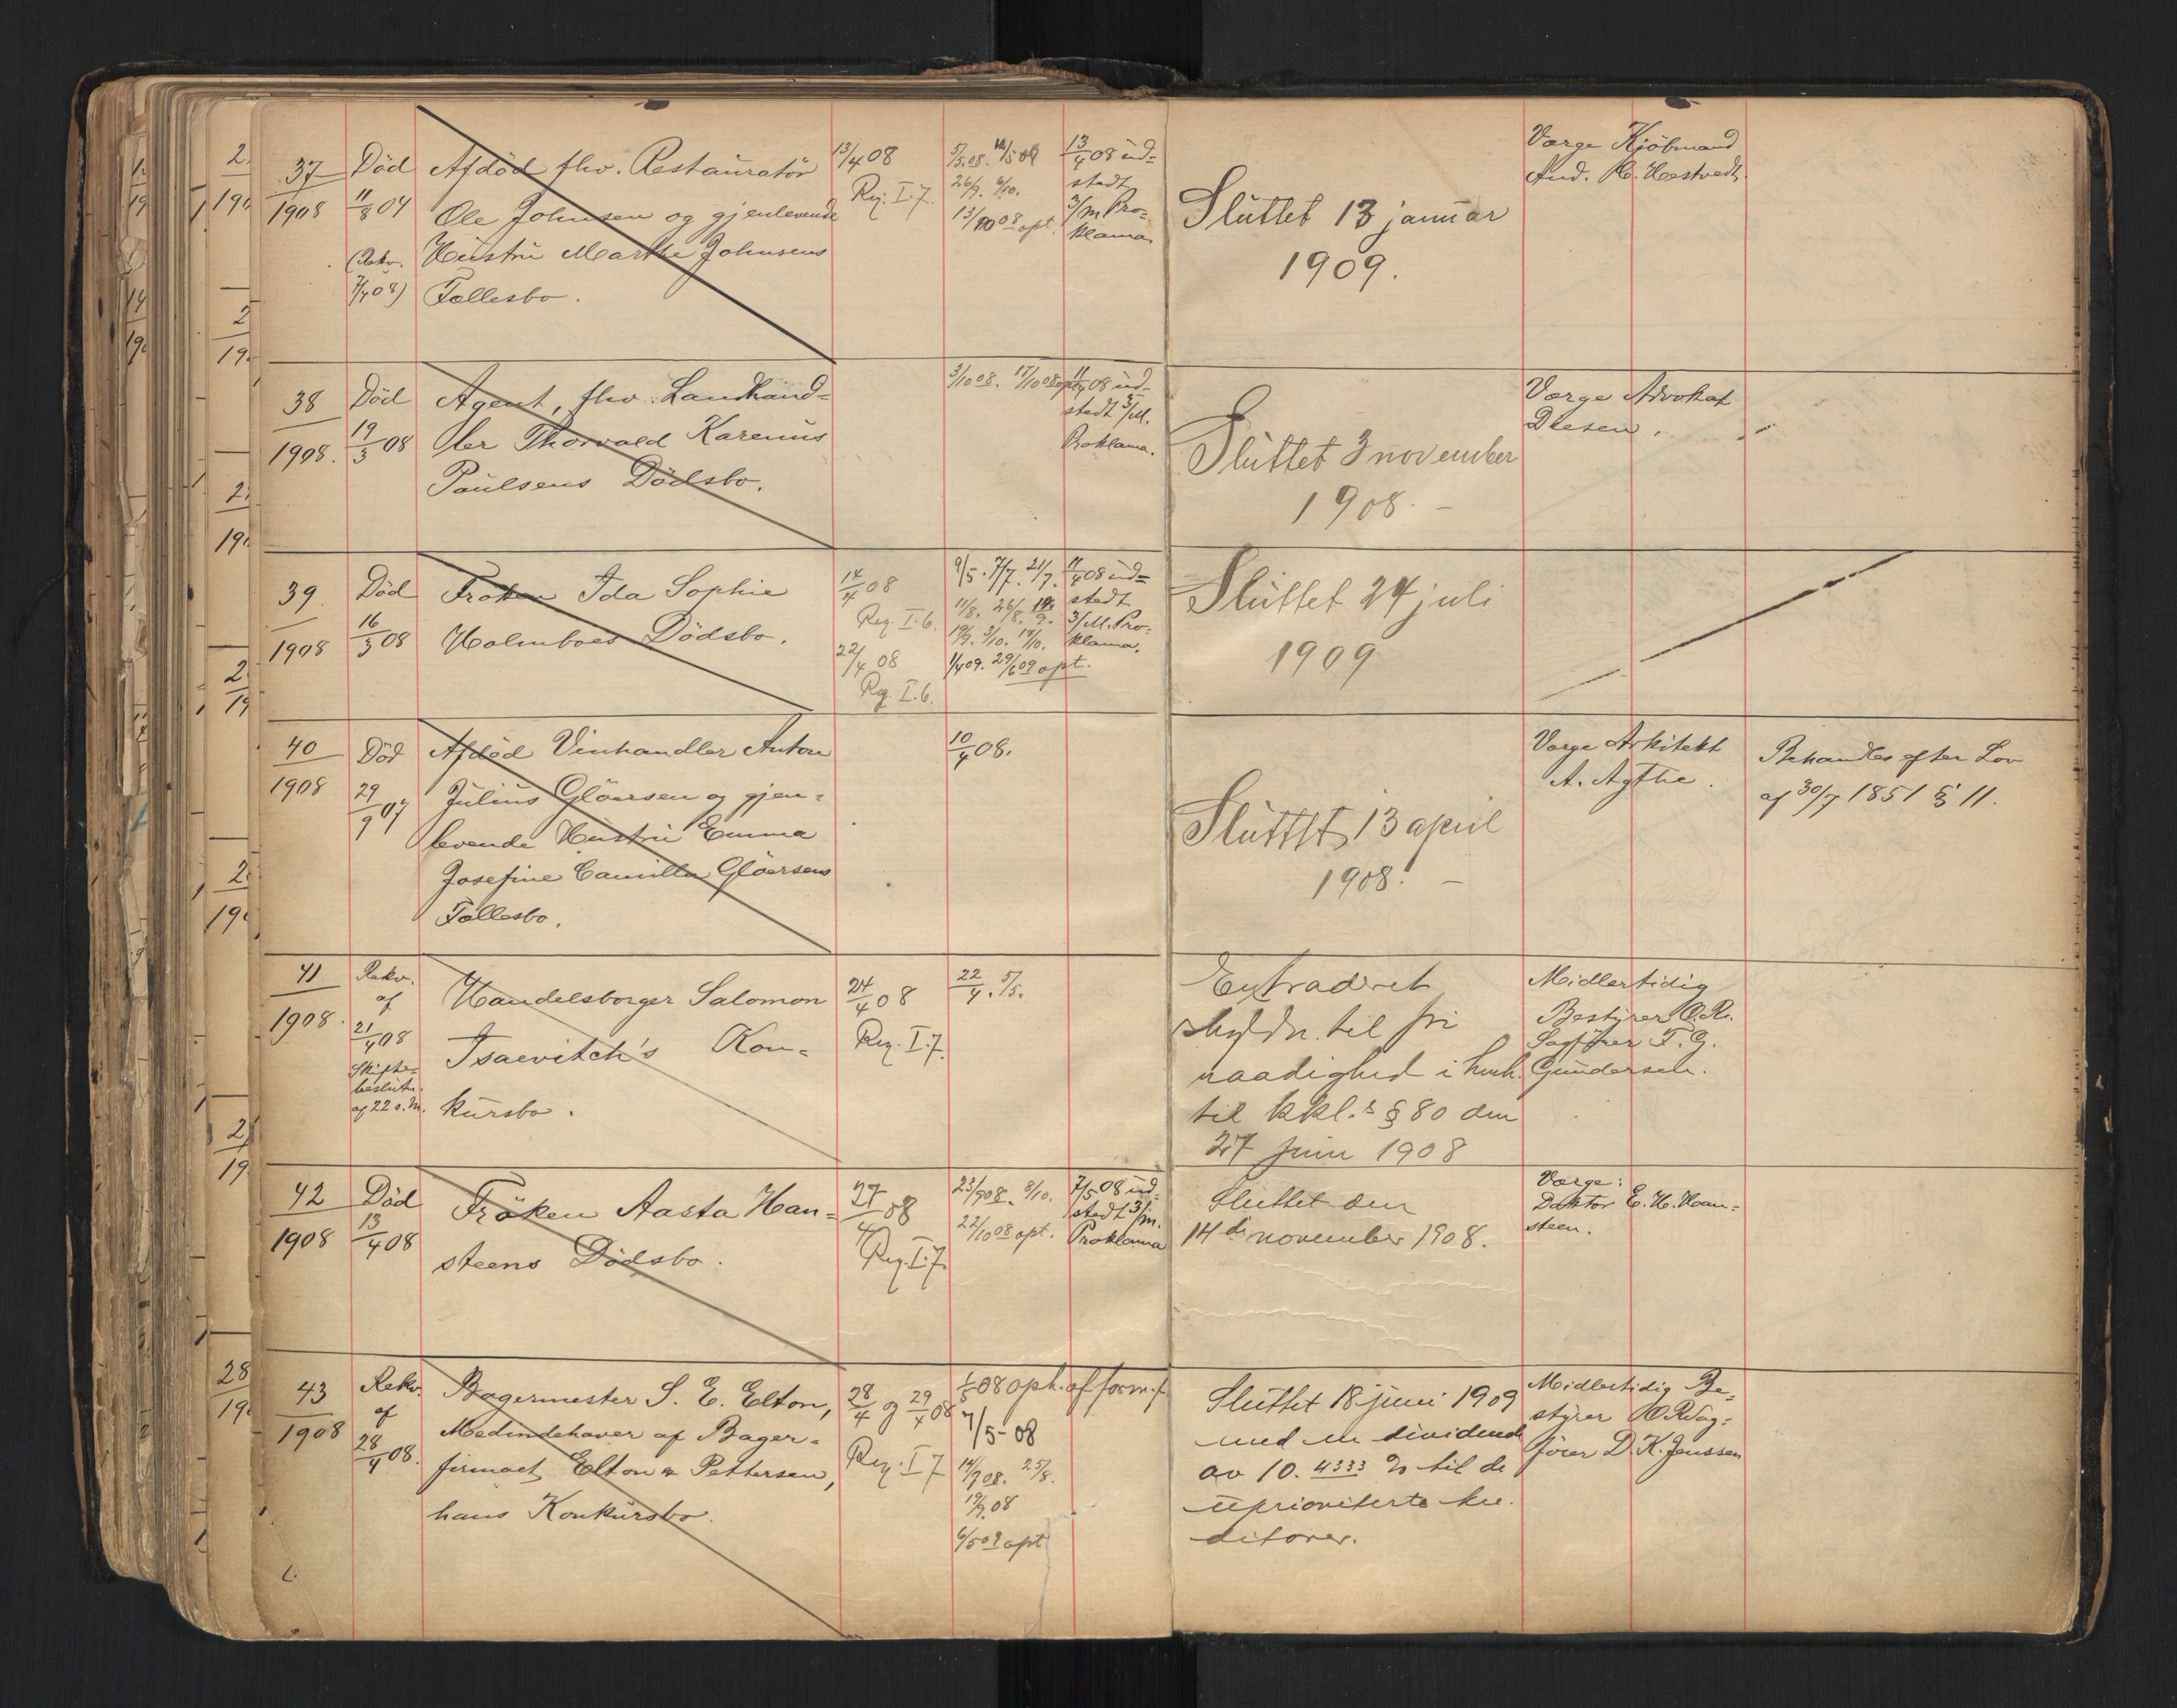 37
1908
Død
11/8 04
(Rekv.
7/4 08)
Afdød fhv. Restauratör
Ole Johnsen og gjenlevende
Hustru Marthe Johnsens
Fællesbo.
13/4 08
Reg. I. 7.
5/5.08. 12/5 08
26/9. 6/10.
13/10 08 opt.
13/4 08 ud=
stedt
3/m Pro=
klama.
Sluttet 13 januar
1909.
Værge Kjöbmand
And. H. Hestvedt.
38
1908.
Död
19/3 08
Agent, fhv. Landhand=
ler Thorvald Karenius
Paulsens Dödsbo.
3/10 08. 17/10 08 opt.
11/4 08 ud=
stedt 3/M.
Proklama.
Sluttet 3 november
1908. –
Værge Advokat
Diesen.
39
1908
Död
16/3 08
Fröken Ida Sophie
Holmboes Dödsbo.
14/4 08
Reg. I. 6.
22/4 08
Reg. I. 6.
9/5. 7/7. 21/7.
11/8. 26/8.
19/9. 3/10. 17/10.
1/4 09. 29/6 09 opt.
11/4 08 ud=
stedt
3/M. Pro=
klama.
Sluttet 24 juli
1909
40
1908
Död
29/9 07
Afdöd Vinhandler Anton
Julius Glöersen og gjen=
levende Hustru Emma
Josefine Camilla Glöersens
Fællesbo.
10/4 08.
Sluttet 13 april
1908. –
Værge Arkitekt
A. Agthe.
Behandles efter Lov
af 30/7 1851 § 11.
41
1908.
Rekv.
af
21/4 08
Skifte=
beslutn.
af 22 s. M.
Handelsborger Salomon
Isaevitch's Kon=
kursbo.
24/4 08
Reg. I. 7.
22/4. 5/5.
Extraderet
skyldn. til fri
raadighed i henh.
til kkl.s § 80 den
27 juni 1908
Midlertidig
Bestyrer O.R.
Sagförer F. G.
Gundersen.
42
1908
Död
13/4 08
Fröken Aasta Han=
steens Dödsbo.
27/4 08
Reg. I. 7.
23/9 08. 8/10.
22/10 08 opt.
7/5 08 ud=
stedt 3/m.
Proklama
Sluttet den
14de november 1908.
Værge:
Doktor E. H. Han=
steen.
43
1908
Rekv.
af
28/4 08.
Bagermester S. E. Elton,
Medindehaver af Bager=
firmaet Elton & Pettersen,
hans Konkursbo.
28/4 og 29/4 08
Reg. I 7
08 oph. af form. f.
7/5-08
14/7 08. 25/8.
19/9.08
6/5 09 opt
Sluttet 18 juni 1909
med en dividende
av 10.4333 % til de
uprioriterte kre=
ditorer.
Midlertidig Be=
styrer O.R.Sag=
förer D. K. Jenssen